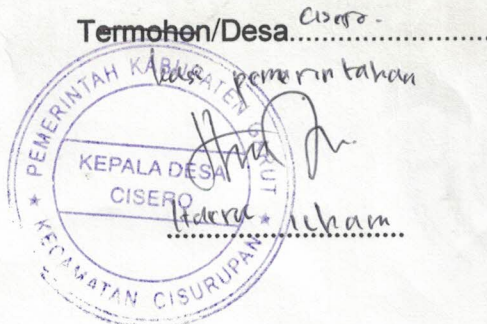 Termohon/Desa Cisero.
kasi pemerintahan
PEMERINTAH KABUPATEN GARUT
KEPALA DESA
CISERO
★ KECAMATAN CISURUPAN ★
ilham